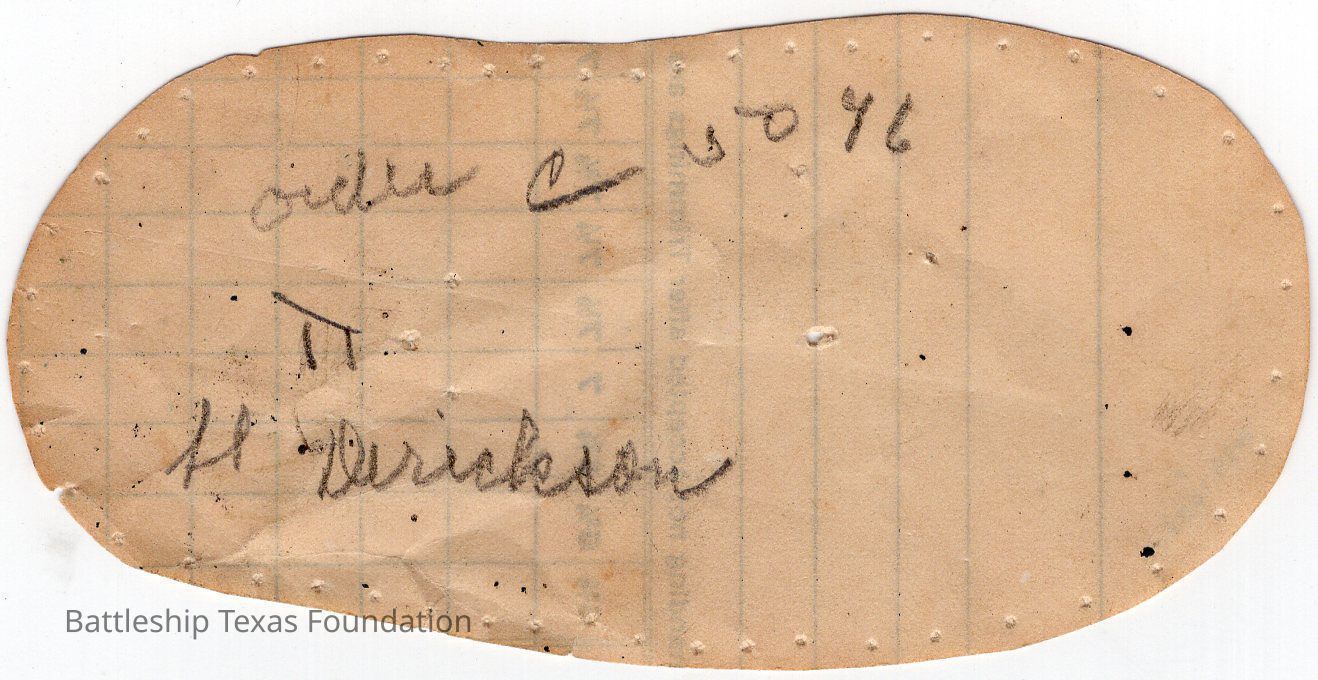 order C 5046
H Derickson
Battleship Texas Foundation